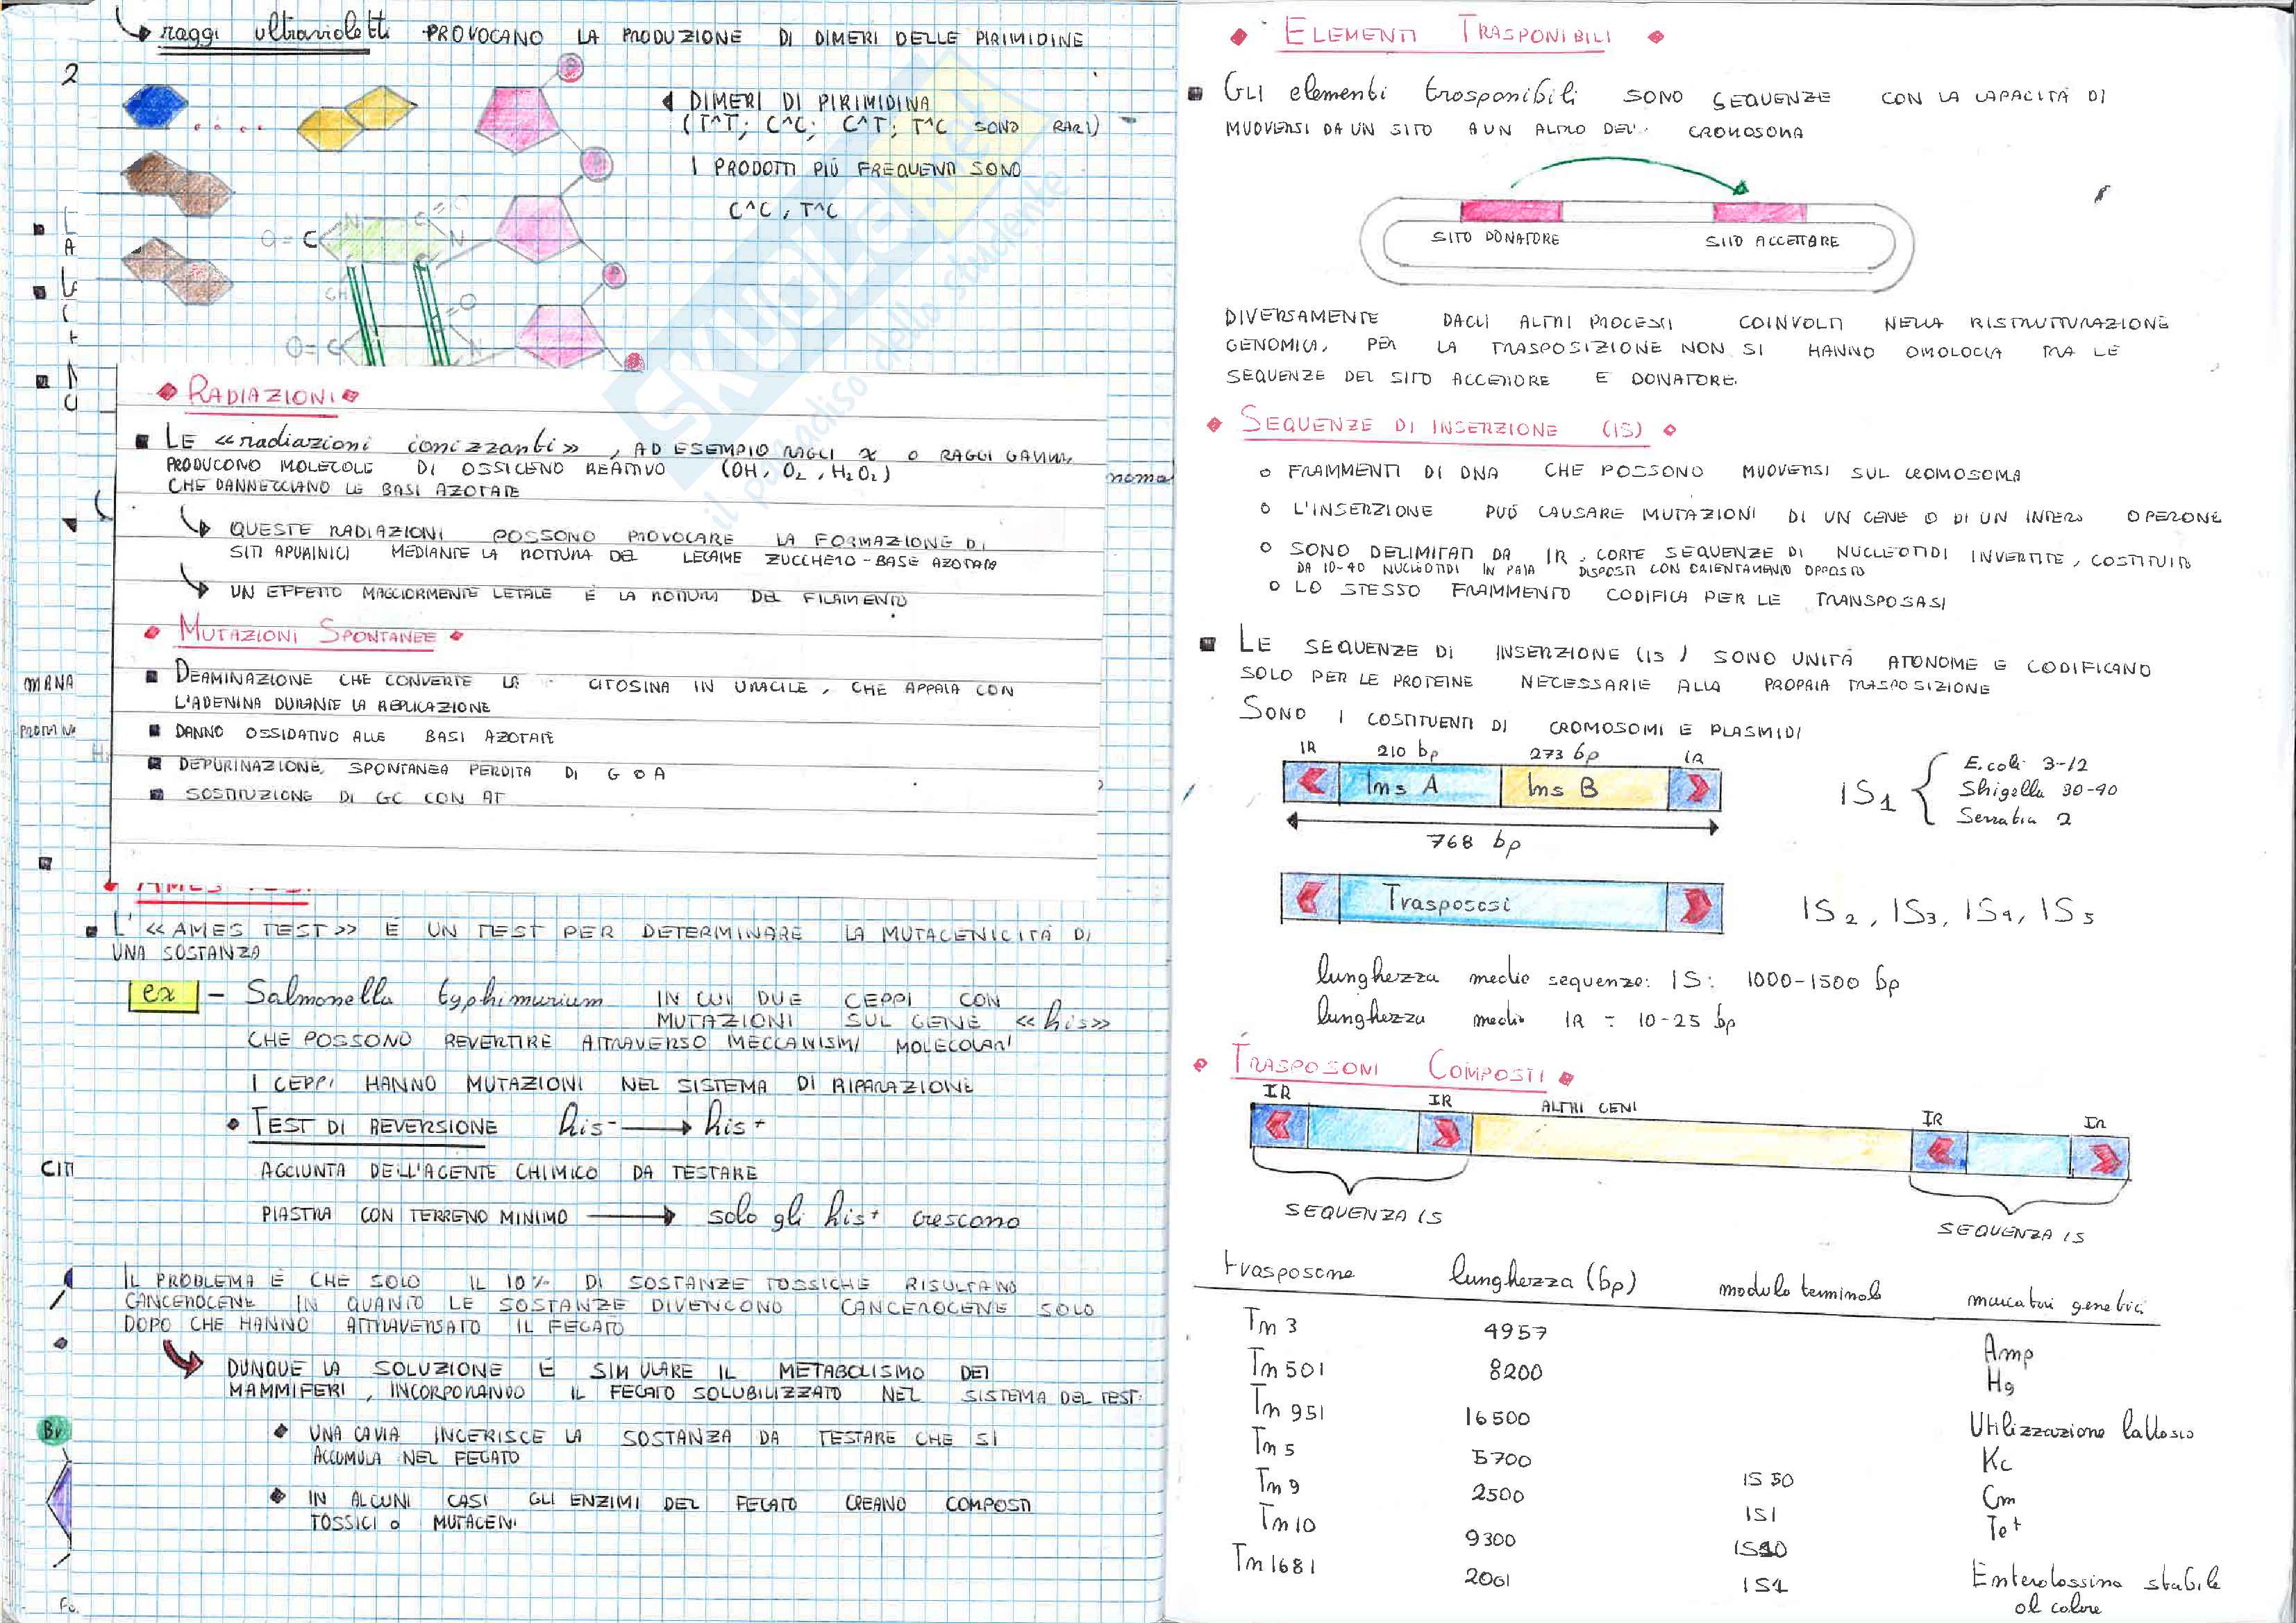 raggi ultravioletti PROVOCANO LA PRODUZIONE DI DIMERI DELLE PIRIMIDINE
2
DIMERI DI PIRIMIDINA
(T^T; C^C; C^T; T^C SONO RARI)
I PRODOTTI PIÙ FREQUENTI SONO
C^C, T^C
RADIAZIONI
LE «radiazioni ionizzanti», AD ESEMPIO RAGGI X O RAGGI GAMMA,
PRODUCONO MOLECOLE DI OSSIGENO REATTIVO (OH, O2, H2O2)
CHE DANNEGGIANO LE BASI AZOTATE
QUESTE RADIAZIONI POSSONO PROVOCARE LA FORMAZIONE DI
SITI APURINICI MEDIANTE LA ROTTURA DEL LEGAME ZUCCHERO-BASE AZOTATA
UN EFFETTO MAGGIORMENTE LETALE È LA ROTTURA DEL FILAMENTO
MUTAZIONI SPONTANEE
DEAMINAZIONE CHE CONVERTE LA CITOSINA IN URACILE, CHE APPAIA CON
L'ADENINA DURANTE LA REPLICAZIONE
DANNO OSSIDATIVO ALLE BASI AZOTATE
DEPURINAZIONE, SPONTANEA PERDITA DI G O A
SOSTITUZIONE DI GC CON AT
AMES TEST
L'«AMES TEST» È UN TEST PER DETERMINARE LA MUTAGENICITÀ DI
UNA SOSTANZA
ex - Salmonella typhimurium IN CUI DUE CEPPI CON
MUTAZIONI SUL GENE «his»
CHE POSSONO REVERTIRE ATTRAVERSO MECCANISMI MOLECOLARI
I CEPPI HANNO MUTAZIONI NEL SISTEMA DI RIPARAZIONE
TEST DI REVERSIONE his- → his+
AGGIUNTA DELL'AGENTE CHIMICO DA TESTARE
PIASTRA CON TERRENO MINIMO → solo gli his+ crescono
IL PROBLEMA È CHE SOLO IL 10% DI SOSTANZE TOSSICHE RISULTANO
CANCEROGENE IN QUANTO LE SOSTANZE DIVENGONO CANCEROGENE SOLO
DOPO CHE HANNO ATTRAVERSATO IL FEGATO
DUNQUE LA SOLUZIONE È SIMULARE IL METABOLISMO DEI
MAMMIFERI, INCORPORANDO IL FEGATO SOLUBILIZZATO NEL SISTEMA DEL TEST:
UNA CAVIA INGERISCE LA SOSTANZA DA TESTARE CHE SI
ACCUMULA NEL FEGATO
IN ALCUNI CASI GLI ENZIMI DEL FEGATO CREANO COMPOSTI
TOSSICI O MUTAGENI
ELEMENTI TRASPONIBILI
GLI elementi trasponibili SONO SEQUENZE CON LA CAPACITÀ DI
MUOVERSI DA UN SITO A UN ALTRO DEL CROMOSOMA
SITO DONATORE SITO ACCETTARE
DIVERSAMENTE DAGLI ALTRI PROCESSI COINVOLTI NELLA RISTRUTTURAZIONE
GENOMICA, PER LA TRASPOSIZIONE NON SI HANNO OMOLOGIA TRA LE
SEQUENZE DEL SITO ACCETTORE E DONATORE.
SEQUENZE DI INSERZIONE (IS)
FRAMMENTI DI DNA CHE POSSONO MUOVERSI SUL CROMOSOMA
L'INSERZIONE PUÒ CAUSARE MUTAZIONI DI UN GENE O DI UN INTERO OPERONE
SONO DELIMITATI DA IR, CORTE SEQUENZE DI NUCLEOTIDI INVERTITE, COSTITUITE
DA 10-40 NUCLEOTIDI IN PAIA DISPOSTI CON ORIENTAMENTO OPPOSTO
LO STESSO FRAMMENTO CODIFICA PER LE TRANSPOSASI
LE SEQUENZE DI INSERZIONE (IS) SONO UNITÀ ATONOME E CODIFICANO
SOLO PER LE PROTEINE NECESSARIE ALLA PROPRIA TRASPOSIZIONE
SONO I COSTITUENTI DI CROMOSOMI E PLASMIDI
IR 210 bp 273 bp IR
Ins A Ins B
768 bp
IS1
E.coli 3-12
Shigella 30-40
Serratia 2
Trasposasi
IS2, IS3, IS4, IS5
lunghezza media sequenze: IS: 1000-1500 bp
lunghezza media IR = 10-25 bp
TRASPOSONI COMPOSTI
IR IR ALTRI GENI IR IR
SEQUENZA IS SEQUENZA IS
trasposone lunghezza (bp) modulo terminale marcatori genetici
Tn 3 4957 Amp
Tn 501 8200 Hg
Tn 951 16500 Utilizzazione lattosio
Tn 5 5700 IS 50 Kc
Tn 9 2500 IS1 Cm
Tn 10 9300 IS10 Tet
Tn 1681 2061 IS1 Enterotossina stabile
al calore
SKUOLA.net
il paradiso dello studente